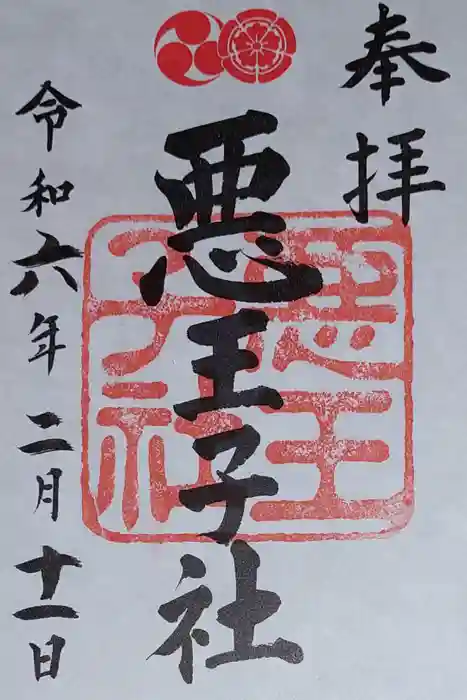 奉拝
悪王子社
悪王子社
令和六年二月十一日